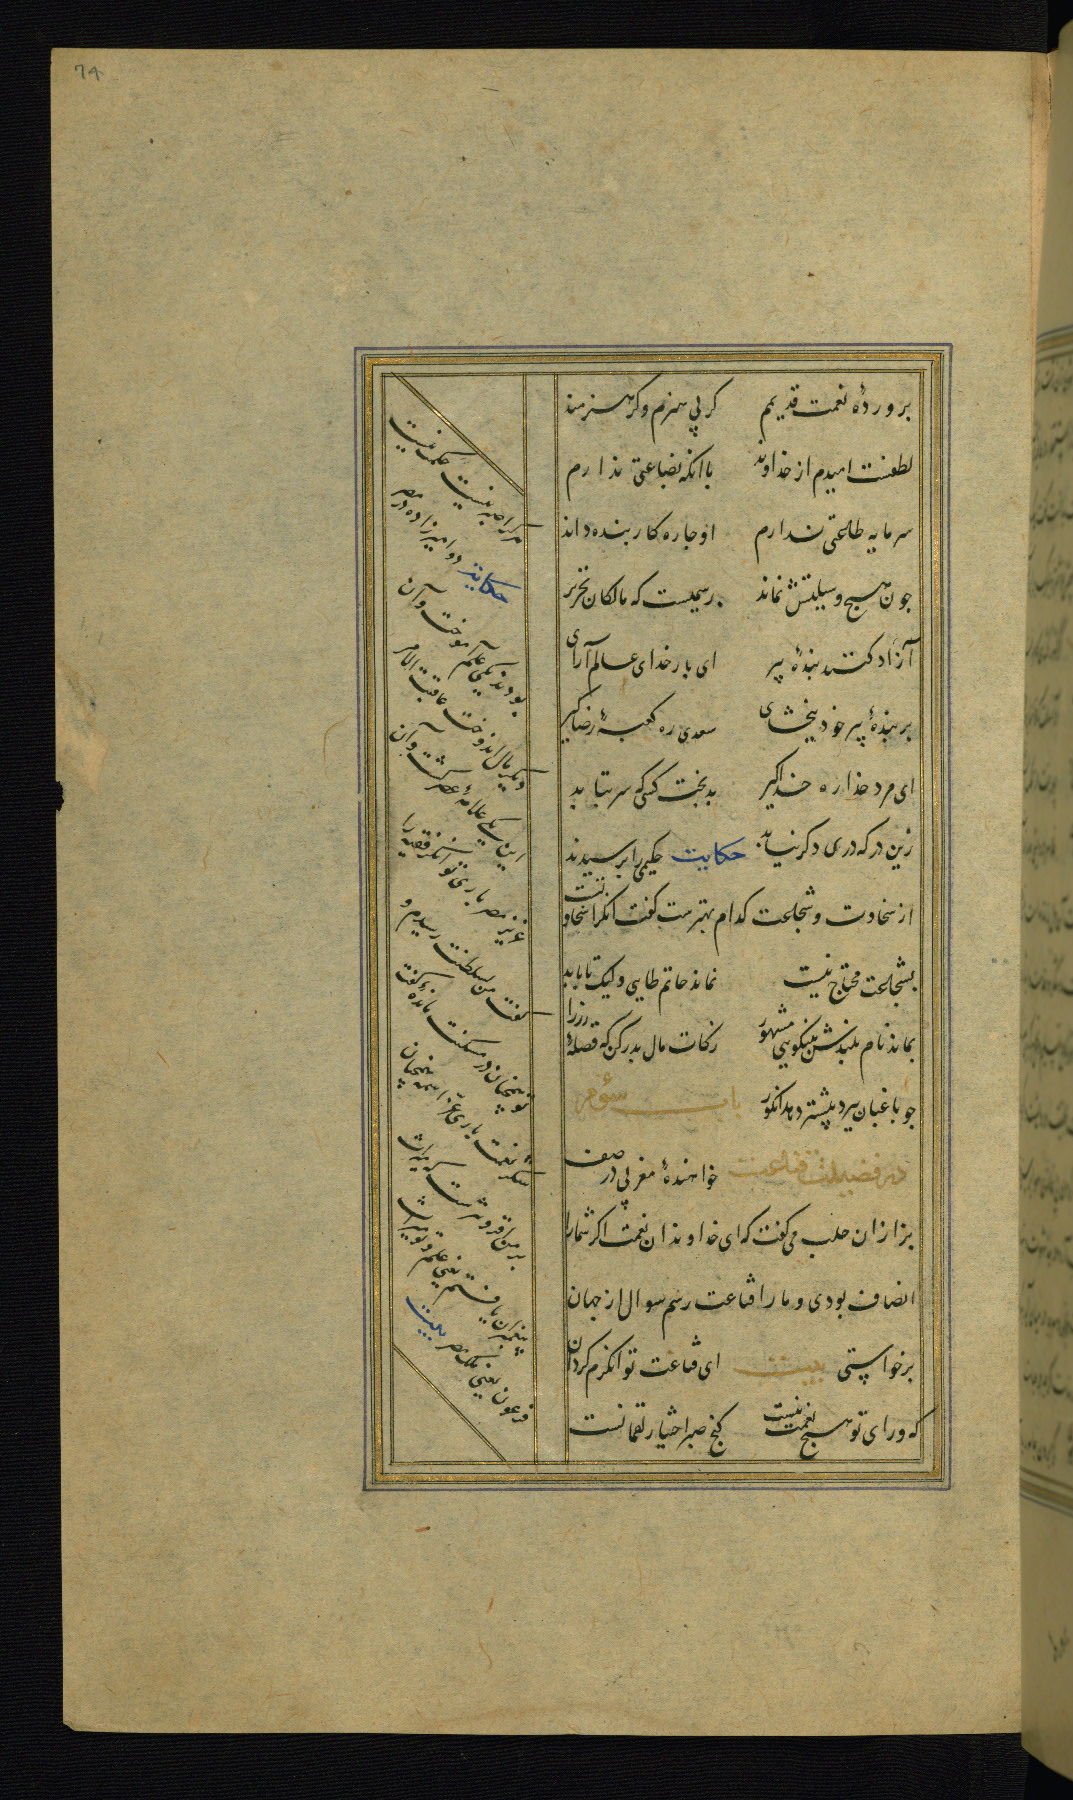 74
پرورده نعمت قدیمم گر بی هنرم و گر هنرمند
لطفست امیدم از خداوند با انکه بضاعتی ندارم
سرمایه طاعتی ندارم او چاره کار بنده داند
چون هیچ وسیلتش نماند رسمیست که مالکان تحریر
آزاد کنند بنده پیر ای بار خدای عالم آرای
بر بنده پیر خود ببخشای سعدی ره کعبه رضا گیر
ای مرد خدا ره خدا گیر بدبخت کسی که سر بتابد
زین در که دری دگر نیابد حکایت حکیمی را پرسیدند
از سخاوت و شجاعت کدام بهترست گفت انکرا سخاوتست
بشجاعت محتاج نیست نماند حاتم طایی ولیک تا بابد
بماند نام بلندش بنیکویی مشهور زکات مال بدر کن که فضله رزرا
چو باغبان ببرد بیشتر دهد انگور باب سوم
در فضیلت قناعت خواهنده مغربی در صف
بزازان حلب می گفت که ای خداوندان نعمت اگر شما را
انصاف بودی و ما را قناعت رسم سوال از جهان
برخواستی بیت ای قناعت توانگرم گردان
که ورای تو هیچ نعمت نیست کنج صبر اختیار لقمانست
هر کرا صبر نیست حکمت نیست
حکایت دو امیرزاده در مصر
بودند یکی علم آموخت و آن
دیگر مال اندوخت عاقبة الامر
این یکی علامه عصر گشت و آن
عزیز مصر باری توانگر فقیه را
گفت من بسلطنت رسیدم و
تو همچنان در مسکنت مانده گفت
شکر نعمت باری عز اسمه همچنان
بر من افزونترست که میراث
پیغمبران یافتم یعنی علم و تو میراث
فرعون یعنی ملک مصر بیت